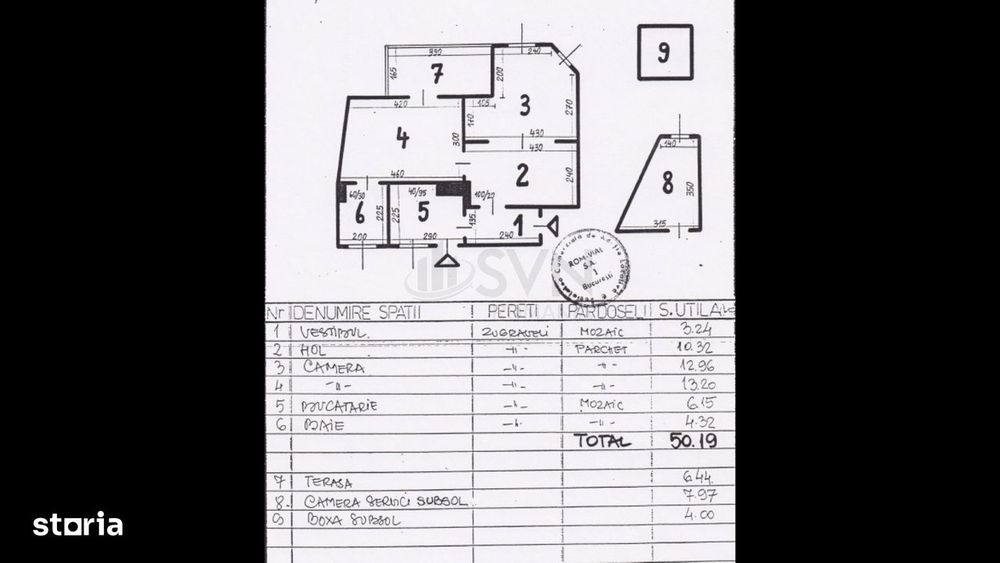 390
240
9
165
7
200
420
105
3
270
170
4
300
430
430
460
2
240
140
8
350
40/30
6
225
225
40/95
5
100/20
135
1
200
290
240
315
ROM-VIAL
S.A.
1
Bucuresti
SVN
Nr DENUMIRE SPATII PERETI PARDOSELI S.UTILA
1 VESTIBUL ZUGRAVELI MOZAIC 3.24
2 HOL -"- PARCHET 10.32
3 CAMERA -"- -"- 12.96
4 -"- -"- -"- 13.20
5 BUCATARIE -"- MOZAIC 6.15
6 BAIE -"- -"- 4.32
TOTAL 50.19
7 TERASA 6.44
8 CAMERA SERVICI SUBSOL 7.97
9 BOXA SUBSOL 4.00
storia